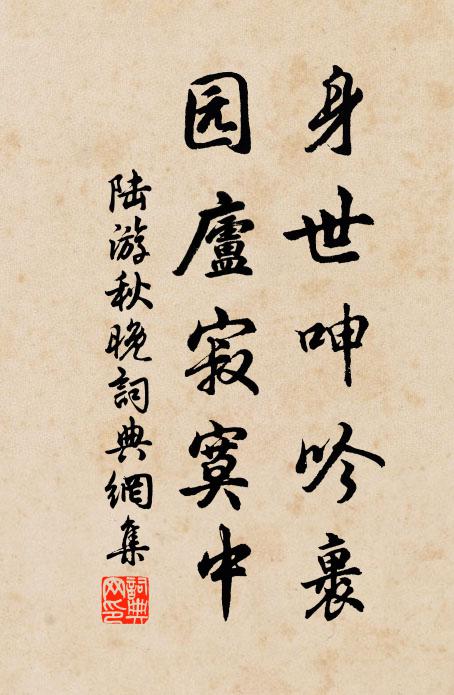 身世呻吟裏
园廬寂寞中
陆游秋晚詞典網集
詞典網印